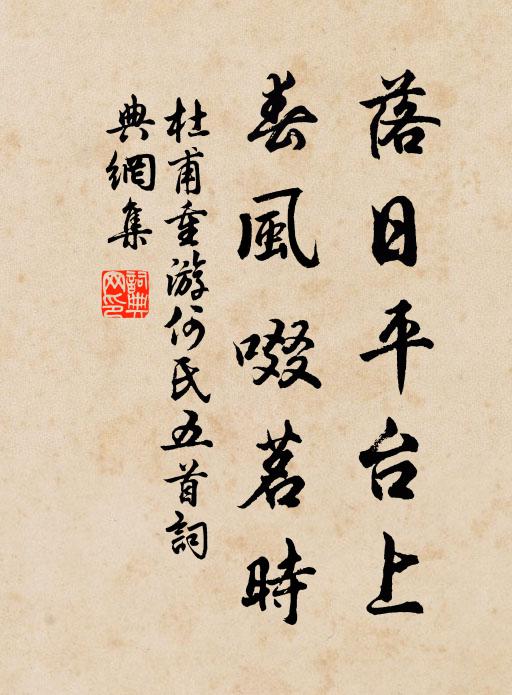 落日平台上
春風啜茗時
杜甫重游何氏五首詞
典網集
詞典
网印